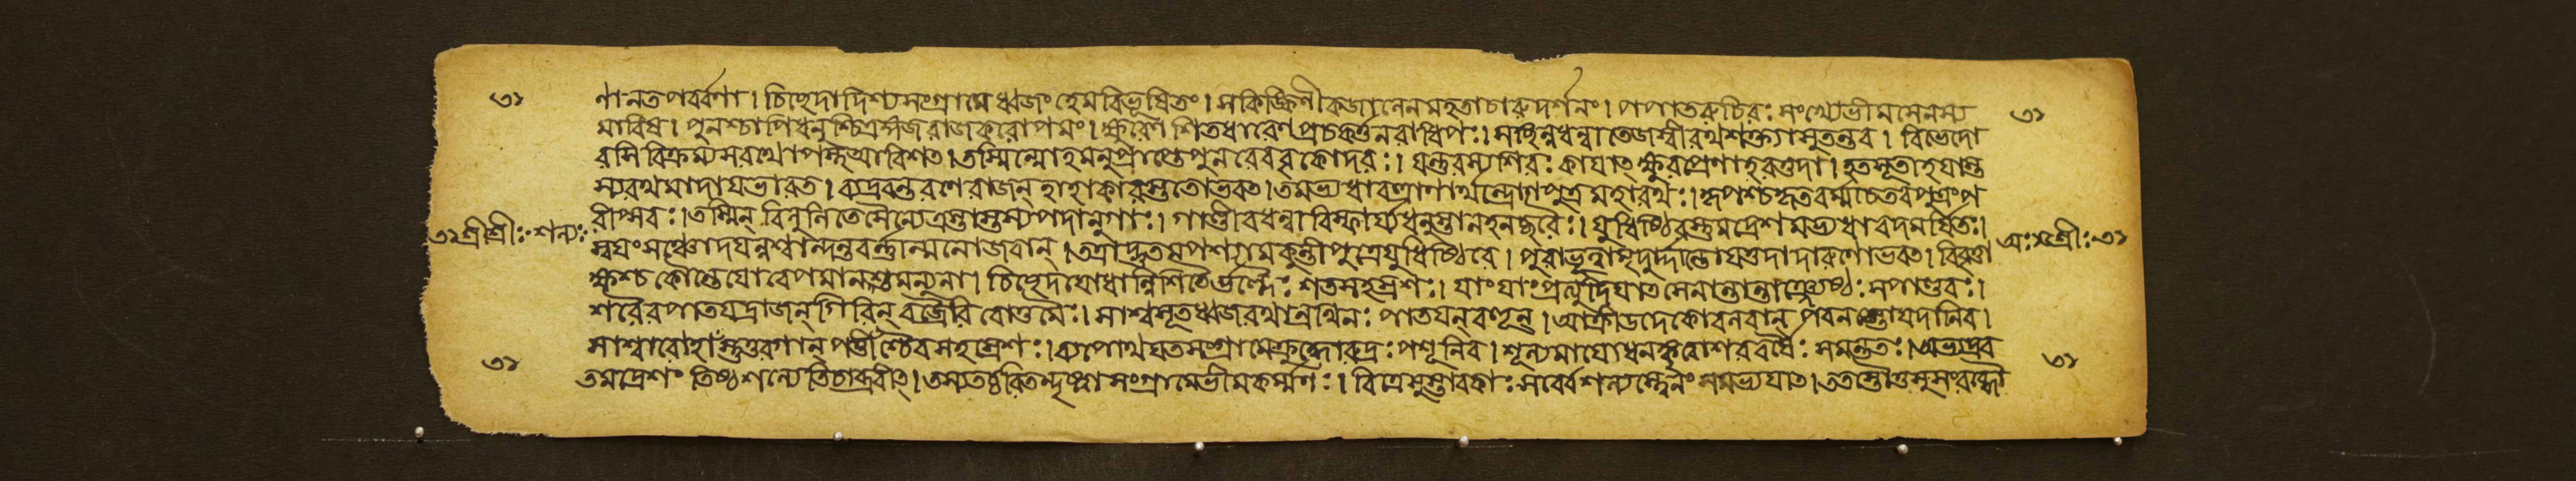 ণানতপর্ব্বণা। চিচ্ছেদাদিশ্যসংগ্রামেধ্বজং হেমবিভূষিতং। সকিঙ্কিণীকজালেনমহতাচারুদর্শনং। পপাতরুচিরঃ সংখ্যেভীমসেনস্য
মারিষ। পুনশ্চাপিধনুশ্চিত্রংগজরাজকরোপমং। ক্ষুরেণ শিতধারেণ প্রচকর্ত্তনরাধিপঃ। সচ্ছিন্নধন্বাতেজস্বীরথশক্ত্যাসুতন্তব। বিভেদো
রসি বিক্রম্যসরথোপস্থআবিশত। তস্মিন্মোহমনুপ্রাপ্তেপুনরেববৃকোদরঃ। যন্তুরস্যশিরঃ কাযাত্ ক্ষুরপ্রেণাহরত্তদা। হতসূতাহযাস্ত
স্যরথমাদাযভারত। ব্যদ্রবন্তরণেরাজন্ হাহাকারস্ততোভবত্। তমভ্যধাবত্ত্রাণার্থন্দ্রোণপুত্রমহারথঃ। কৃপশ্চকৃতবর্ম্মাচতেবপুত্রংপ
রীপ্সবঃ। তস্মিন্ বিলুনিতেসৈন্যেত্রস্তাস্তস্যপদানুগাঃ। গাণ্ডীবধন্বাবিস্ফার্য্যধনুস্তানহনচ্ছরৈঃ। যুধিষ্ঠিরস্তুমদ্রেশমভ্যধাবদমর্ষিতঃ।
স্বযংসঞ্চোদযন্নশ্বান্দন্তবর্ণ্ণান্মনোজবান্। তত্রাদ্ভুতমপশ্যামকুন্তীপুত্রেযুধিষ্ঠিরে। পুরাভূত্বামৃদুর্দ্দান্তোযত্তদাদারুণোভবত্। বিবৃতা
ক্ষশ্চকৌন্তেযোবেপমানশ্চমন্যুনা। চিচ্ছেদযোধান্নিশিতৈর্ভল্লৈঃ শতসহস্রশঃ। যাংযাংপ্রত্যুদ্দিযাতসেনান্তান্তাঞ্জ্যেষ্ঠঃ সপাণ্ডবঃ।
শরৈরপাতযদ্রাজন্ গিরিন্ বজ্রৈরিবোত্তমৈঃ। সাশ্বসূতধ্বজরথান্রথিনঃ পাতযন্ বহূন্। আক্রীডদেকোবলবান্ পবনস্তোযদানিব।
সাশ্বারোহাংস্তুতুরগান্ পত্তীংশ্চৈবসহস্রশঃ। ব্যপোথযতসংগ্রামেক্রুদ্ধোরুদ্রঃ পশূনিব। শূন্যমাযোধনঙ্কৃত্বাশরবর্ষৈঃ সমন্ততঃ। অভ্যদ্রব
তমদ্রেশং তিষ্ঠশল্যেতিচাব্রবীত্। তস্যতচ্চরিতন্দৃষ্ট্বাসংগ্রামেভীমকর্ম্মণঃ। বিত্রেসুস্তাবকাঃ সর্ব্বেশল্যস্ত্বেনং সমভ্যযাত। ততস্তৌতুসুসংরব্ধৌ